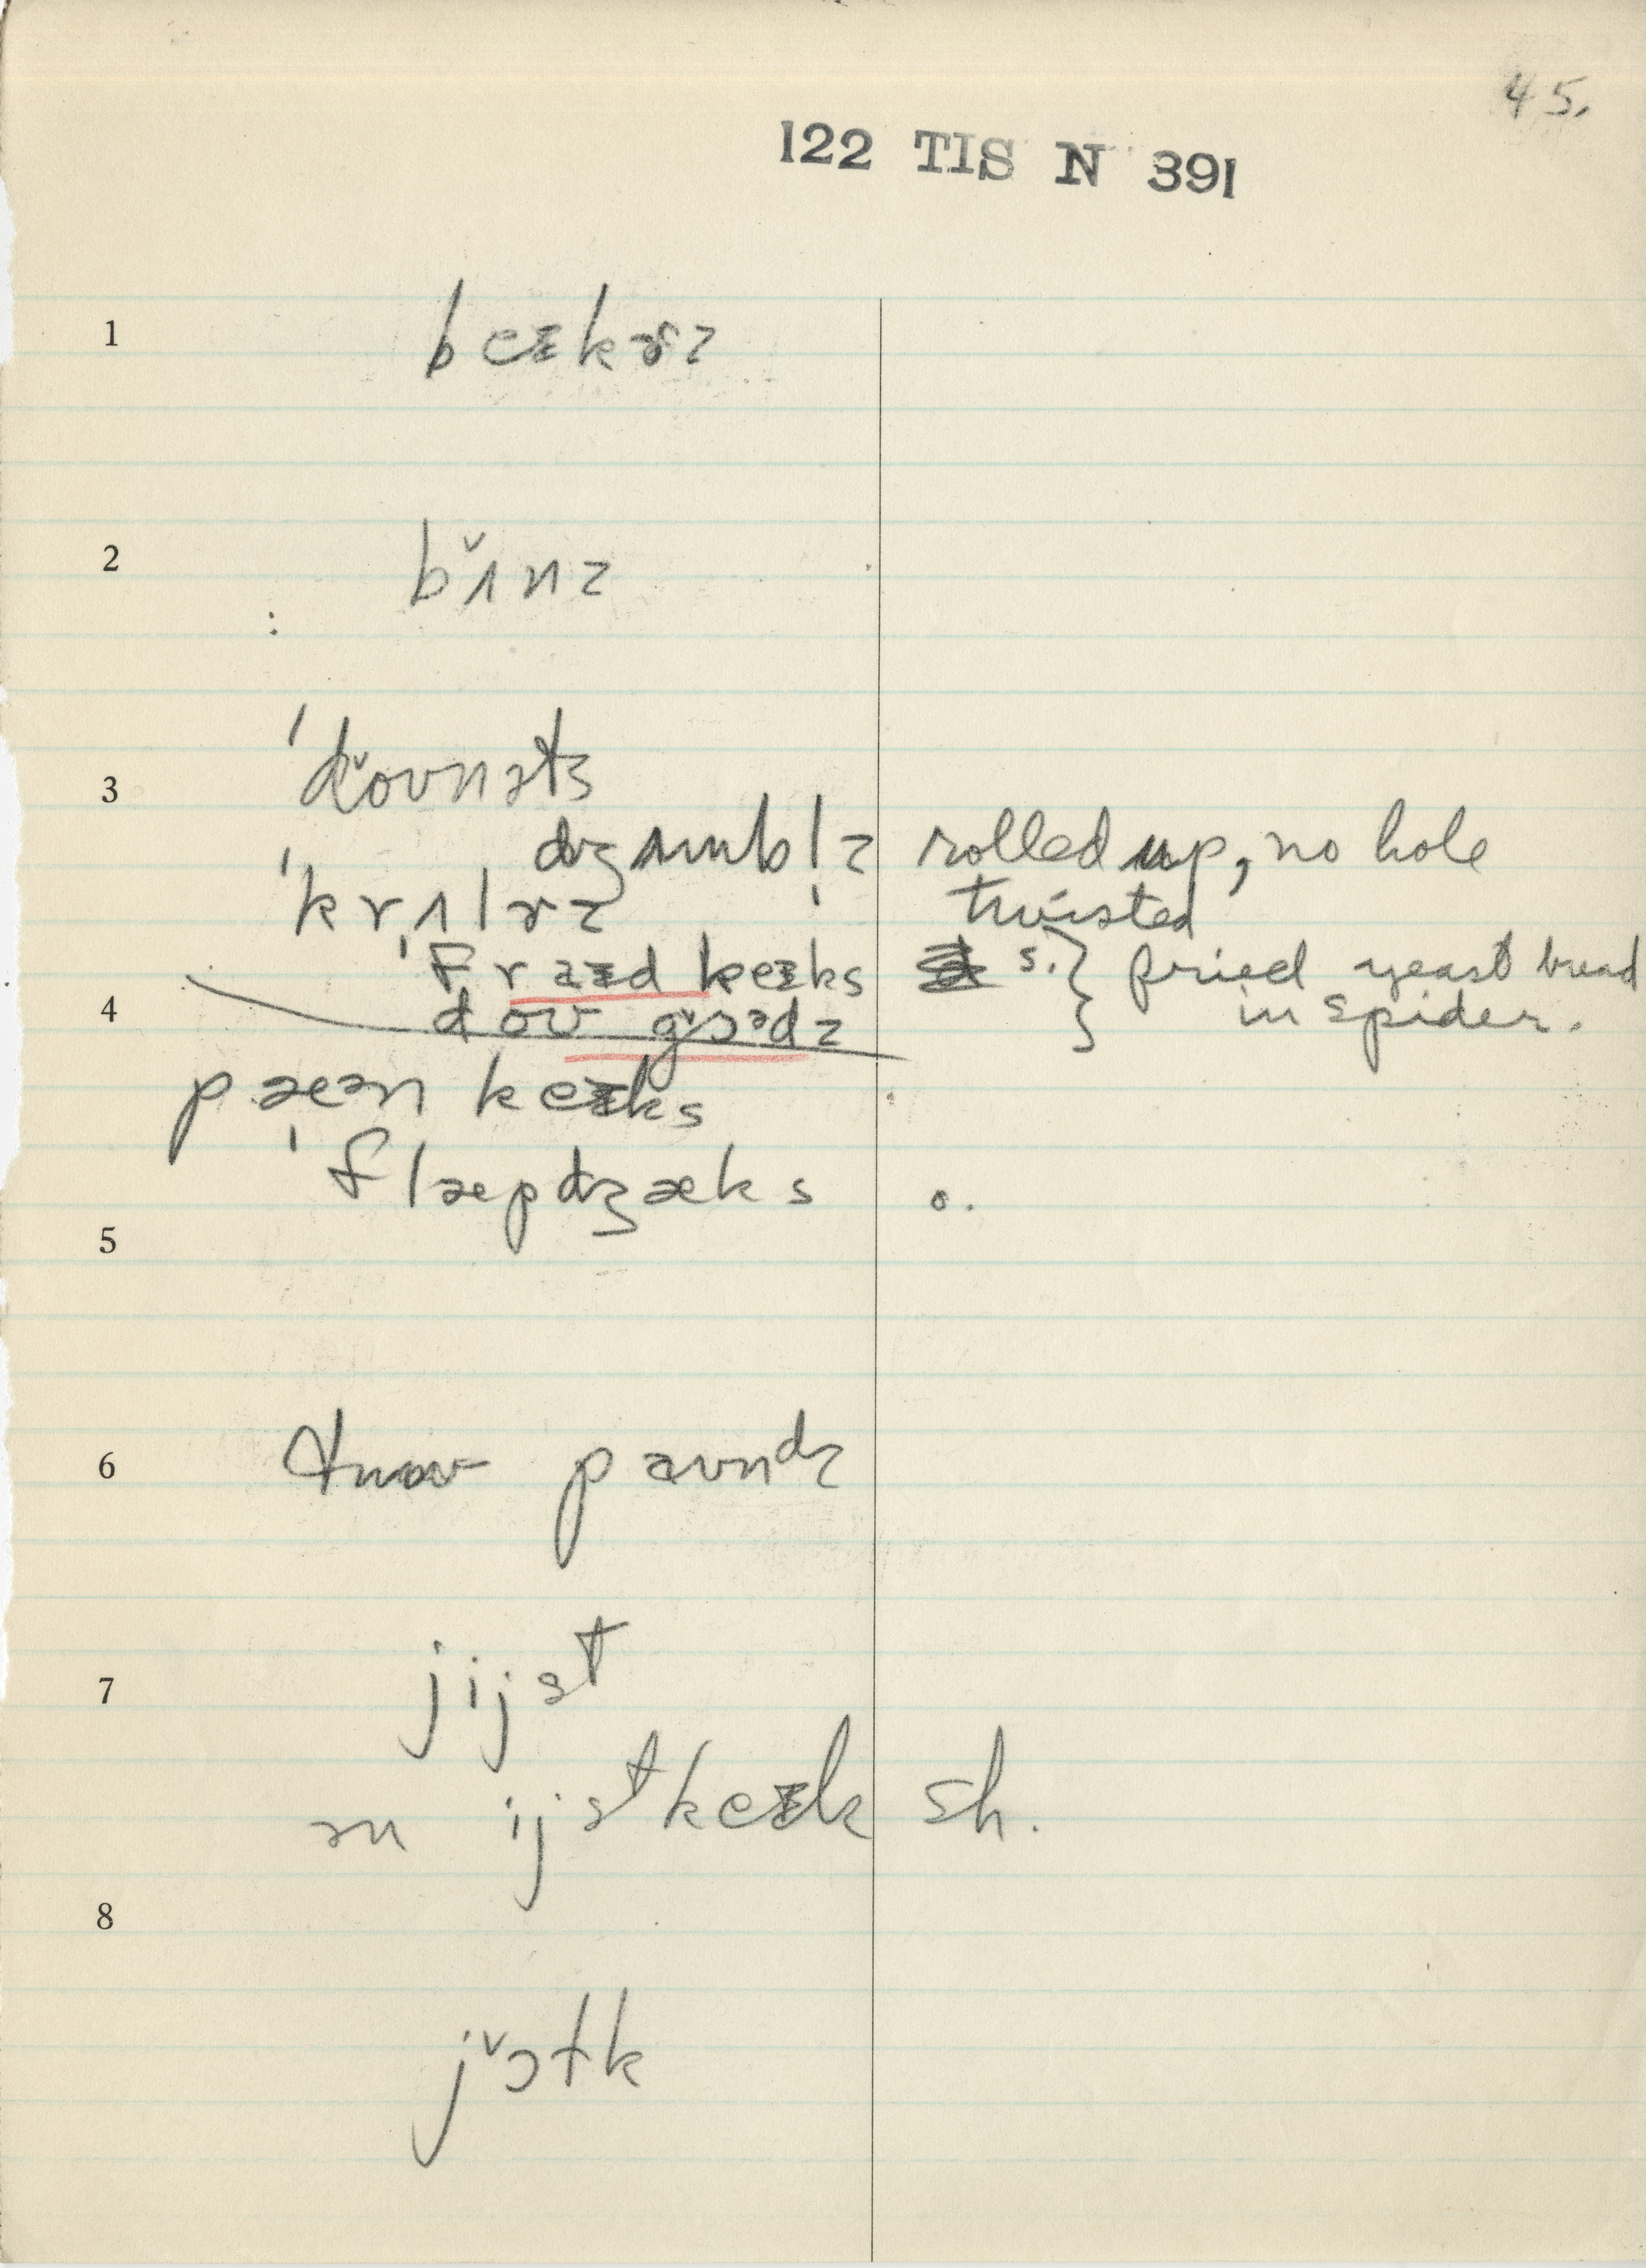 45.
122 TIS N 391
1 beᵻkɚz
2 bʌ̌nz
3 ˈdǒʊnəts
dʒʌmbl̩z rolled up, no hole
ˈkrʌlɚz twisted
ˈfraᵻd keᵻks s. } fried yeast bread
4 doʊ gɔ̌ᵊdz in spider.
pæən keᵻks
ˈflæpdʒæks o.
5
6 paʊndz
7 jijst
ən ijst keᵻk sh.
8
jɔ̌tk